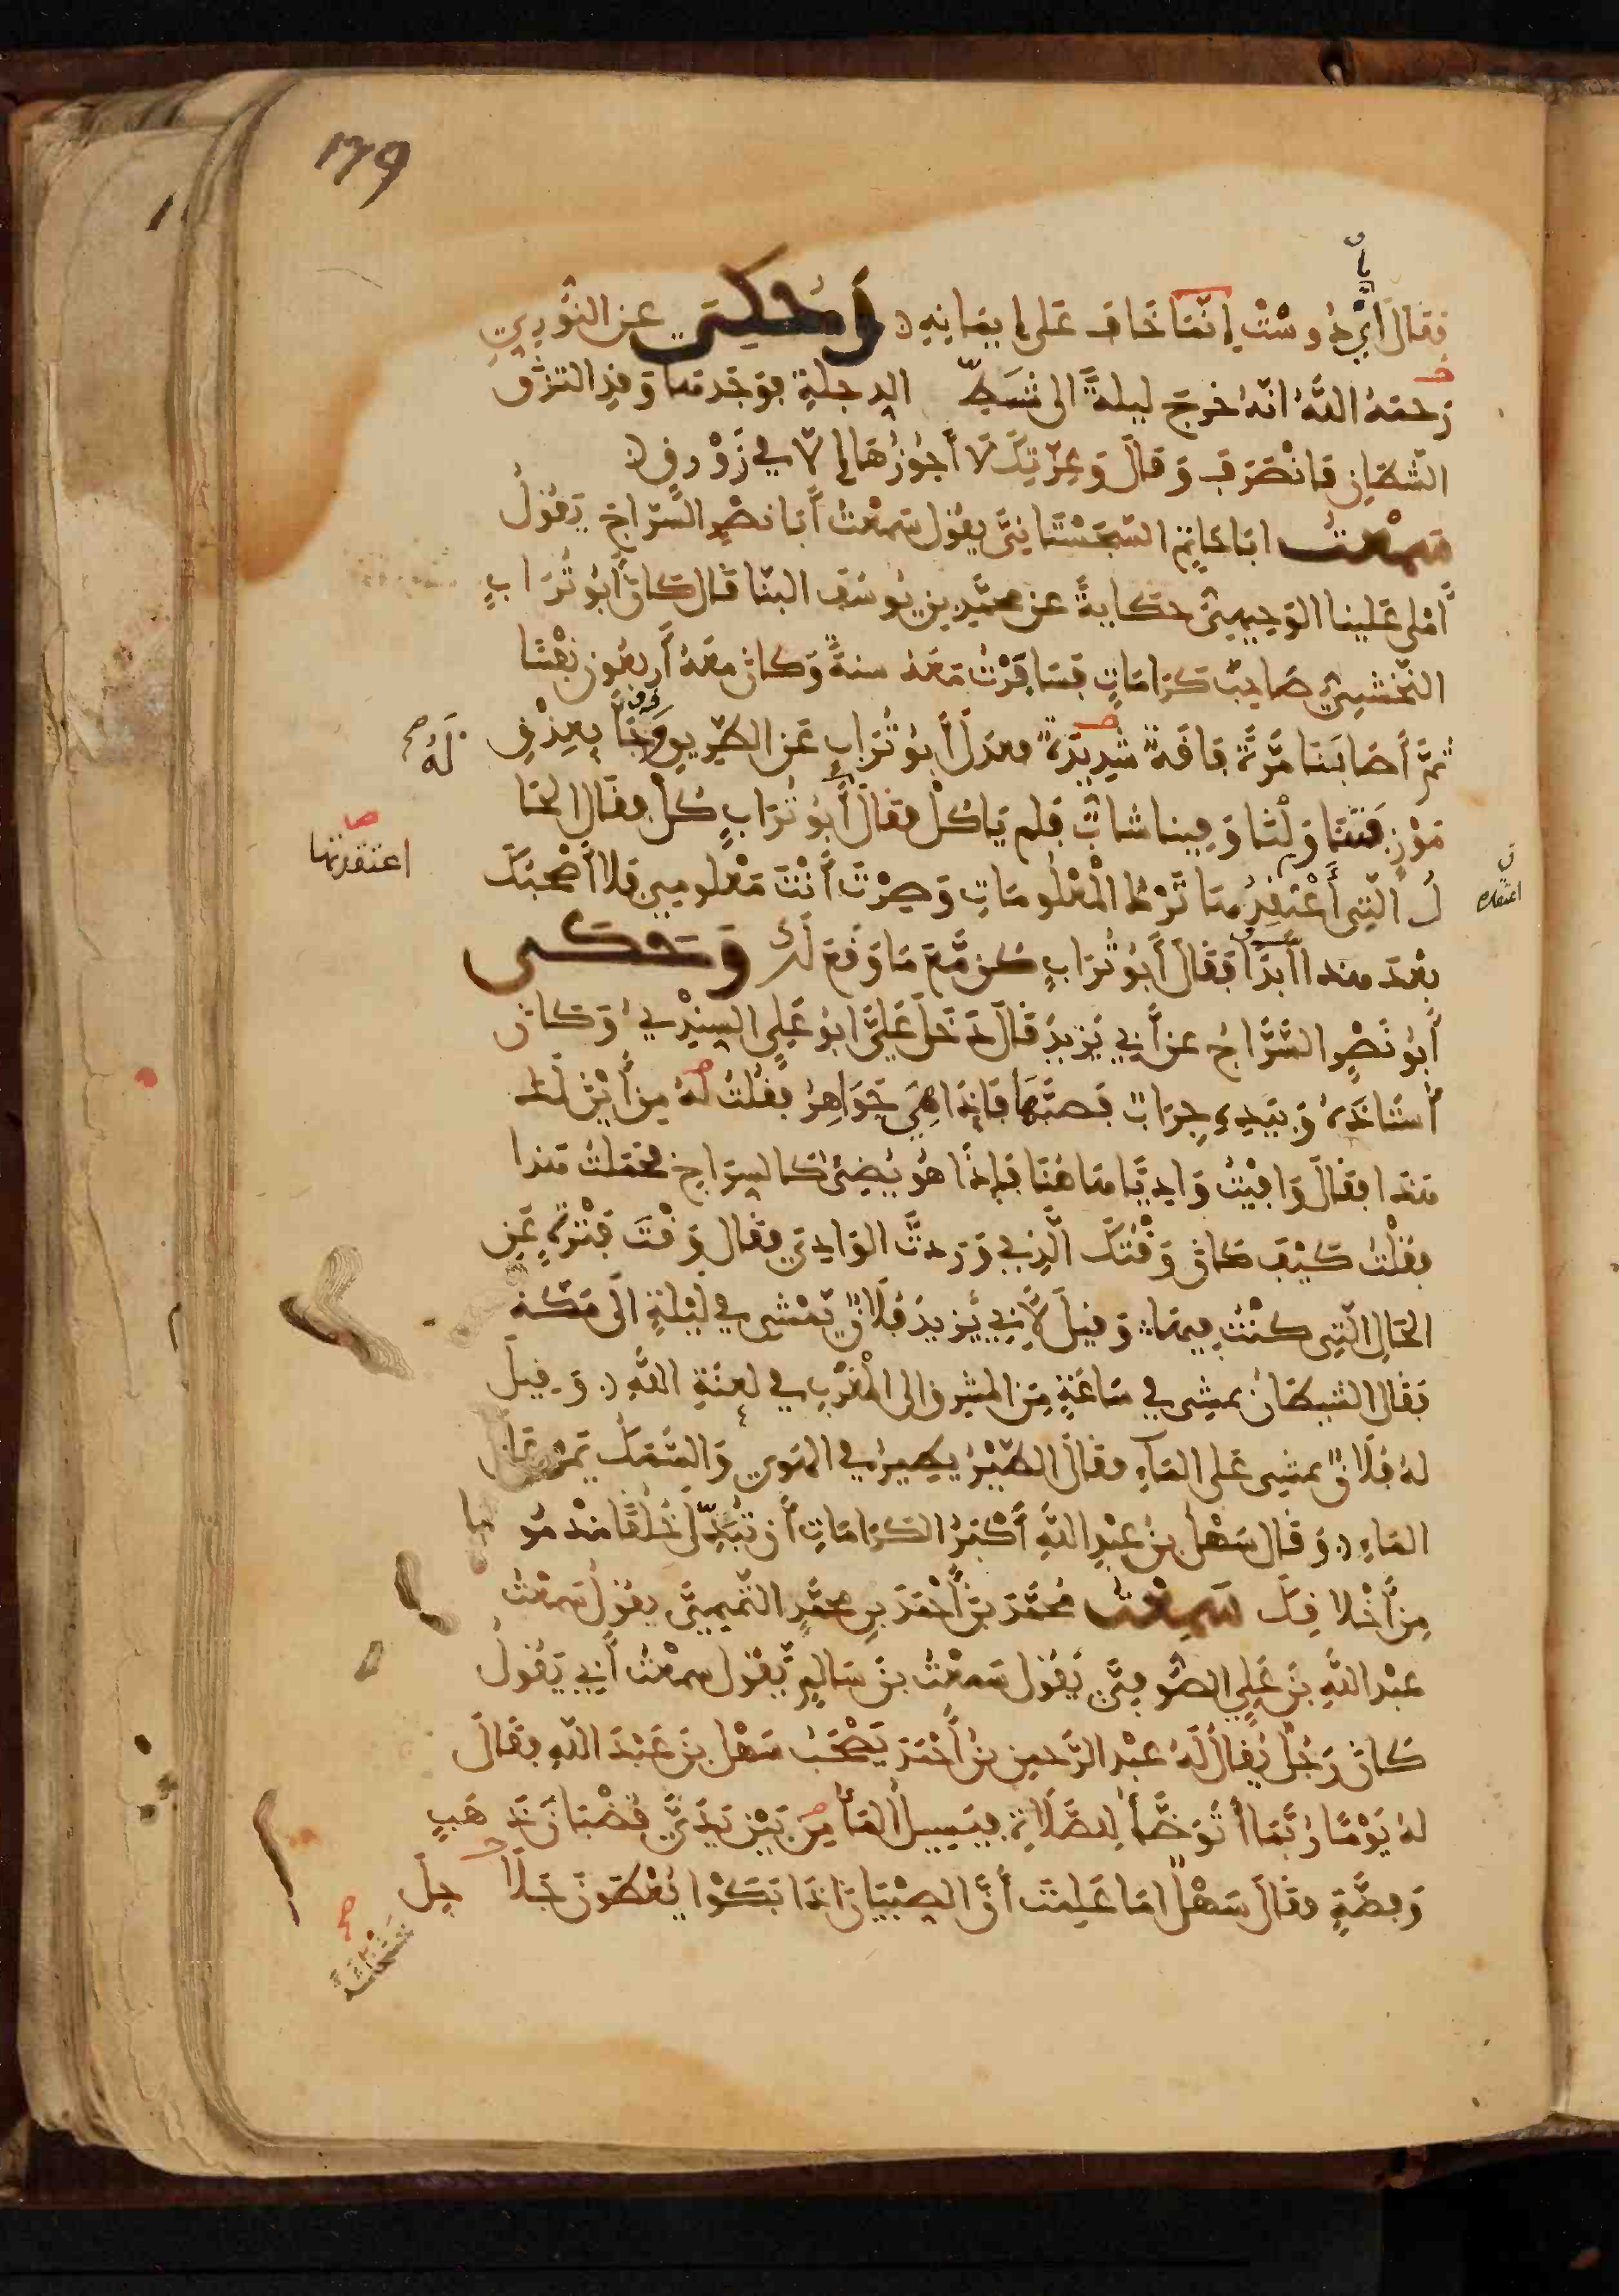 179
فقال أي دوست إنما خاف على إيمانه وحكى عن النوري
رحمه الله أنه خرج ليلة الى شط الدجلة فوجدها وقد التزق
الشطان فانصرف وقال وعزتك لا أجوزها إلا في زورق
سمعت ابا حاتم السجستاني يقول سمعت أبا نصر السراج يقول
أملى علينا الوجيهي حكاية عن محمد بن يوسف البنا قال كان أبو تراب
النخشبي صاحب كرامات فسافرت معه سنة وكان معه أربعون نفسا
ثم أصابتنا مرة فاقة شديدة فعدل أبو تراب عن الطريق وجاءنا بعذق
له صح
موز فتناولنا وفينا شاب فلم ياكل فقال أبو تراب كل فقال الحا
ل التي أعتقد منها ترك المعلومات وصرت أنت معلومي فلا أصحبك
اعتقدتها
اعتقده
بعد هذا أبدا فقال أبو تراب كن مع ما وقع لك وحكى
أبو نصر السراج عن أبي يزيد قال دخل علي ابو علي السندي وكان
أستاذه وبيده جراب فصبها فإذا هي جواهر فقلت له من أين لك
هذا فقال وافيت واديا هاهنا فإذا هو يضيء كالسراج فحملت هذا
فقلت كيف كان وقتك الذي وردت الوادي فقال وقت فترة عن
الحال التي كنت فيها وقيل لأبي يزيد فلان يمشي في ليلة الى مكة
فقال الشيطان يمشي في ساعة من المشرق الى المغرب في لعنة الله وقيل
له فلان يمشي على الماء فقال الطير يطير في الهوى والسمك يمر على
الماء وقال سهل بن عبد الله أكبر الكرامات أن تبدل خلقا مذموما
من أخلاقك سمعت محمد بن أحمد بن محمد التميمي يقول سمعت
عبد الله بن علي الصوفي يقول سمعت بن سالم يقول سمعت أبي يقول
كان رجل يقال له عبد الرحمن بن أحمد يصحب سهل بن عبد الله فقال
له يوما ربما أتوضأ للصلاة فيسيل الماء من بين يدي قضبان ذهب
وفضة فقال سهل اما علمت أن الصبيان إذا بكوا يعطون
خشخاشة صح